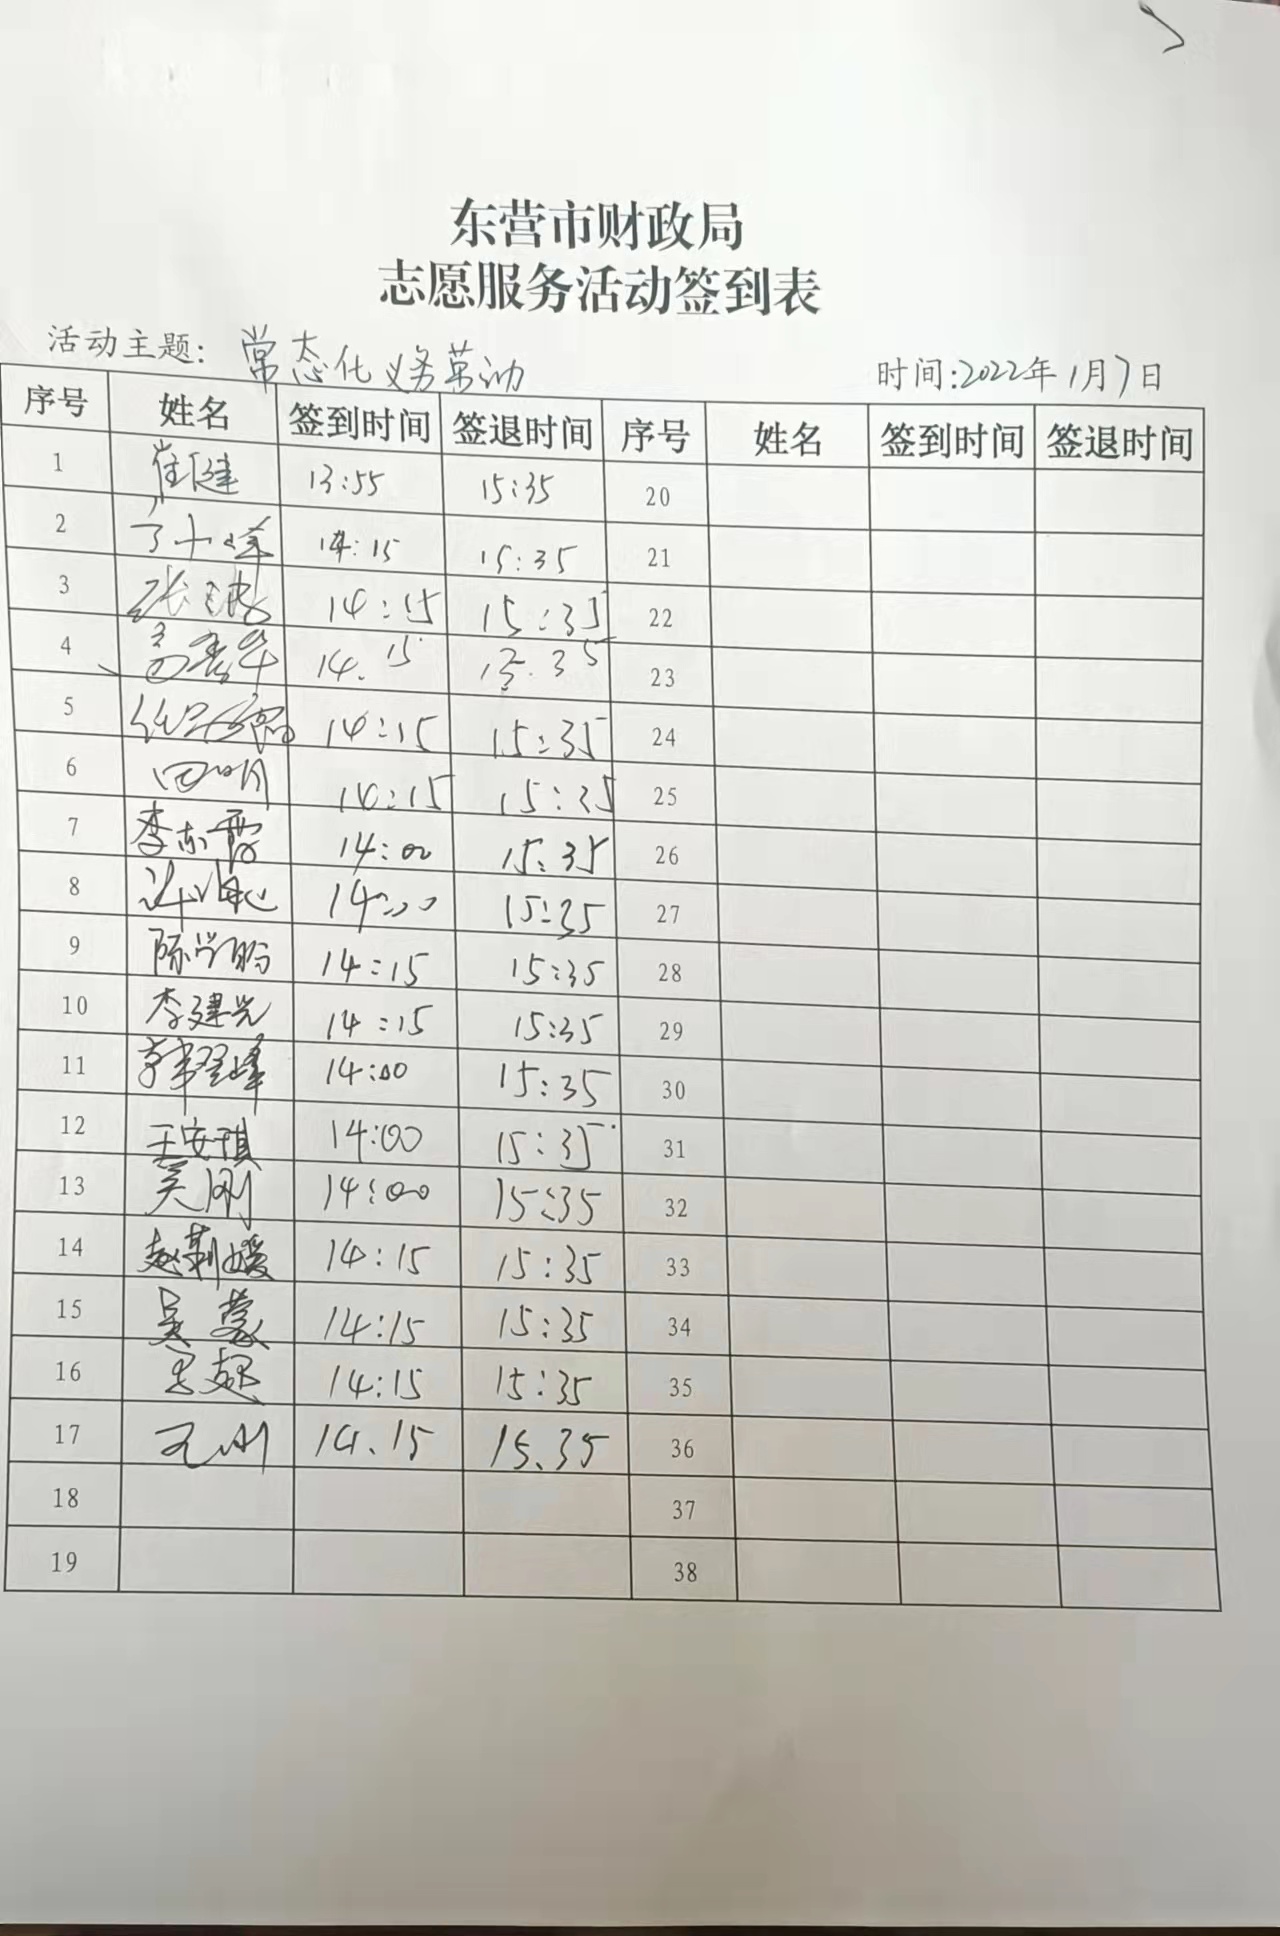 东营市财政局
志愿服务活动签到表
活动主题：常态化义务劳动 时间：2022年1月7日
序号 姓名 签到时间 签退时间 序号 姓名 签到时间 签退时间
1 崔健 13:55 15:35 20
2 14:15 15:35 21
3 张 14:15 15:35 22
4 14.15 15.35 23
5 14:15 15:35 24
6 田明 14:15 15:35 25
7 李东霞 14:00 15:35 26
8 14:00 15:35 27
9 陈学昀 14:15 15:35 28
10 李建光 14:15 15:35 29
11 韩翠峰 14:00 15:35 30
12 王安琪 14:00 15:35 31
13 吴刚 14:00 15:35 32
14 赵莉媛 14:15 15:35 33
15 吴蒙 14:15 15:35 34
16 14:15 15:35 35
17 王刚 14.15 15.35 36
18 37
19 38